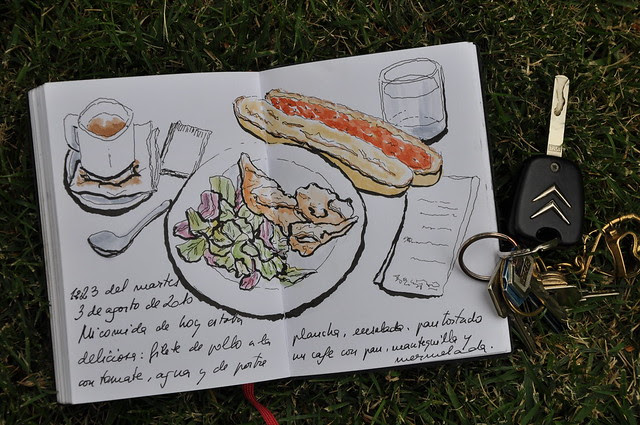 del martes
3 de agosto de 2010
Mi comida de hoy estaba
deliciosa: filete de pollo a la plancha, ensalada, pan tostado
con tomate, agua y de postre un cafe con pan, mantequilla y
mermelada.